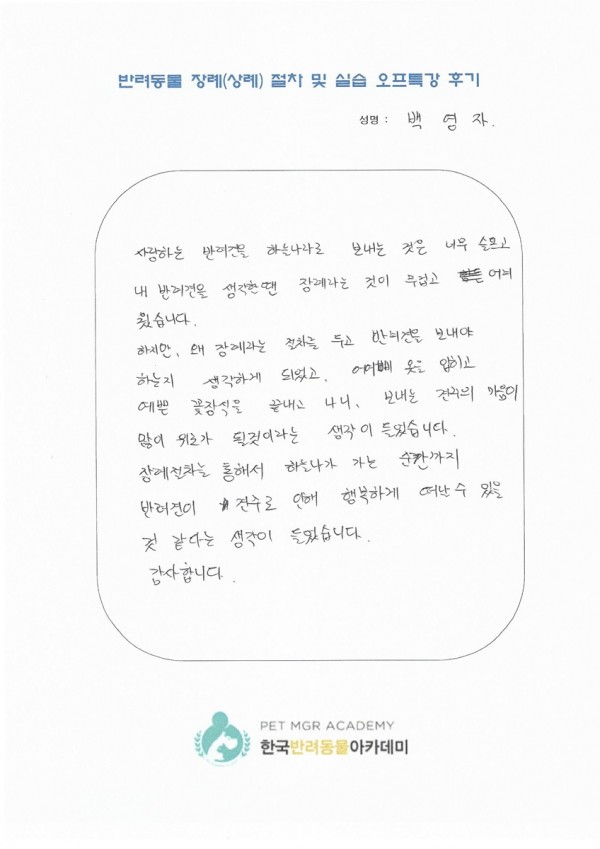 반려동물 장례(상례) 절차 및 실습 오프특강 후기
성명 : 백 영 자.
사랑하는 반려견을 하늘나라로 보내는 것은 너무 슬프고
내 반려견을 생각한땐 장례라는 것이 무겁고 어려
웠습니다.
하지만, 왜 장례라는 절차를 두고 반려견을 보내야
하는지 생각하게 되었고, 옷을 입히고
예쁜 꽃장식을 끝내고 나니, 보내는 견주의 마음이
많이 위로가 될것이라는 생각이 들었습니다.
장례절차를 통해서 하늘나가 가는 순간까지
반려견이 견주로 인해 행복하게 떠날수 있을
것 같다는 생각이 들었습니다.
감사합니다.
PET MGR ACADEMY
한국반려동물아카데미